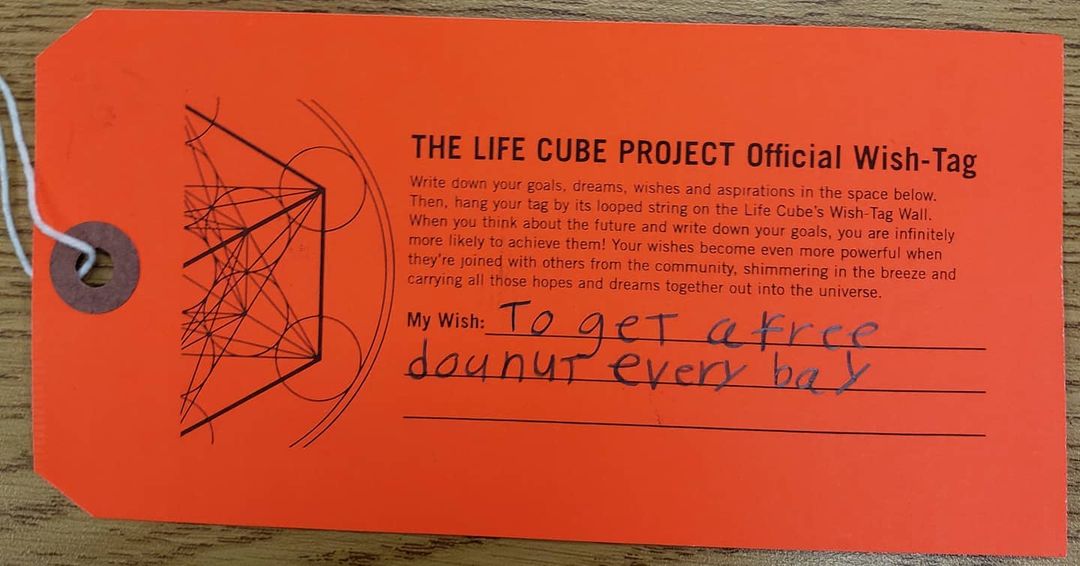 THE LIFE CUBE PROJECT Official Wish-Tag
Write down your goals, dreams, wishes and aspirations in the space below.
Then, hang your tag by its looped string on the Life Cube's Wish-Tag Wall.
When you think about the future and write down your goals, you are infinitely
more likely to achieve them! Your wishes become even more powerful when
they're joined with others from the community, shimmering in the breeze and
carrying all those hopes and dreams together out into the universe.
My Wish: To geT a free
dounuT every bay